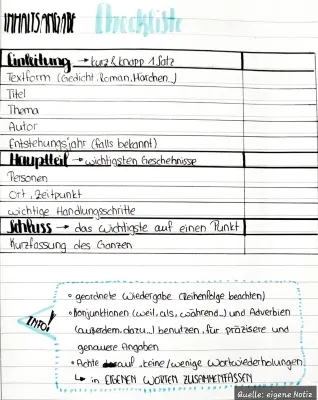 INHALTSANGABE Checkliste
Einleitung → kurz & knapp 1 Satz
Textform (Gedicht, Roman, Märchen...)
Titel
Thema
Autor
Entstehungsjahr (falls bekannt)
Hauptteil → wichtigsten Geschehnisse
Personen
Ort, Zeitpunkt
wichtige Handlungsschritte
Schluss → das wichtigste auf einen Punkt
Kurzfassung des Ganzen
INFO!
• geordnete Wiedergabe (Reihenfolge beachten)
• Konjunktionen (weil, als, während...) und Adverbien
(außerdem, dazu...) benutzen, für präzisere und
genauere Angaben
• Achte auf, keine/wenige Wortwiederholungen
↳ in EIGENEN WORTEN ZUSAMMENFASSEN
Quelle: eigene Notiz